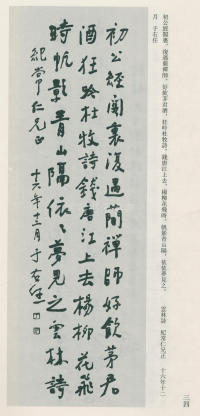 初公經閣裏，復過藺禪師。好飲茅君酒，狂吟杜牧詩。錢唐江上去，楊柳花飛時。帆影青山隔，依依夢見之。　雲林詩　紀常仁兄正　十六年十二
月　于右任
初公經閣裏復過藺禪師好飲茅君
酒狂吟杜牧詩錢唐江上去楊柳花飛
時帆影青山隔依依夢見之雲林詩
紀常仁兄正　十六年十二月　于右任
三四